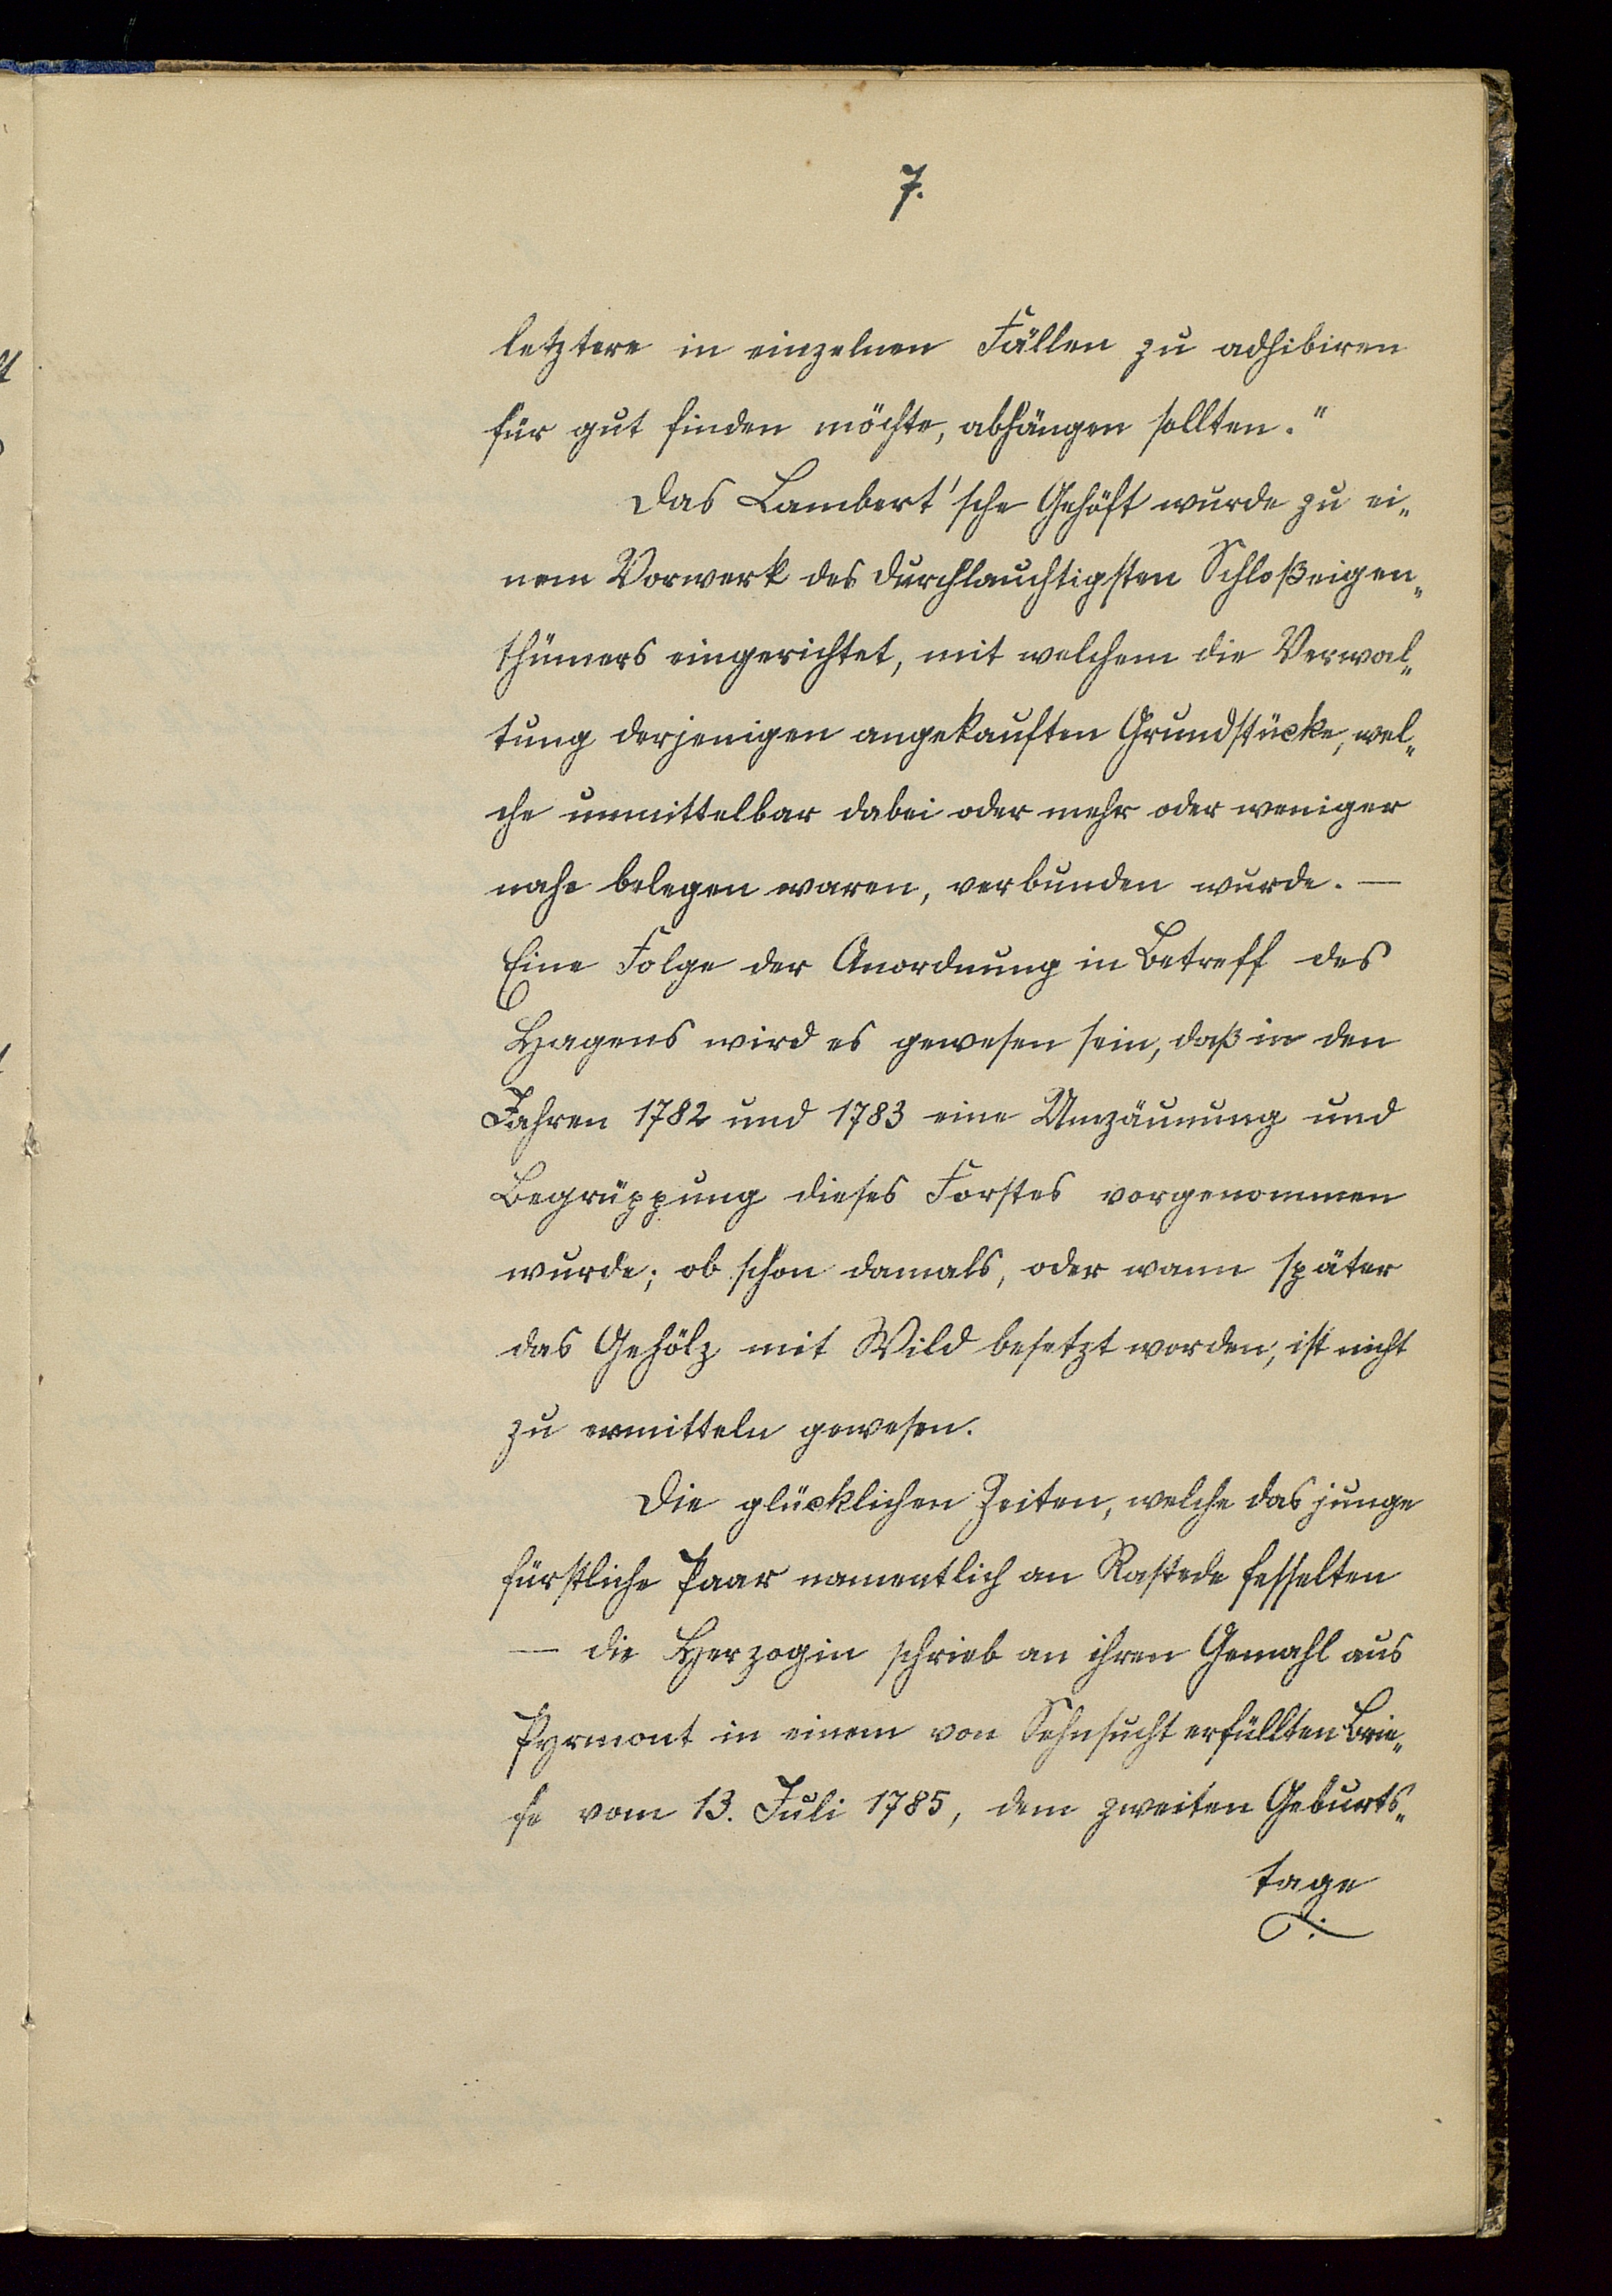 7.
letztere in einzelnen Fällen zu adhibiren
für gut finden möchte, abhängen sollten."
Das Lambert'sche Gehöft wurde zu ei„
nem Vorwerk des durchlauchtigsten Schloßeigen„
thümers eingerichtet, mit welchem die Verwal„
tung derjenigen angekauften Grundstücke, wel„
che unmittelbar dabei oder mehr oder weniger
nahe belegen waren, verbunden wurde. —
Eine Folge der Anordnung in Betreff des
Hagens wird es gewesen sein, daß in den
Jahren 1782 und 1783 eine Umzäunung und
Begrüppung dieses Forstes vorgenommen
wurde; ob schon damals, oder wann später
das Gehölz mit Wild besetzt worden, ist nicht
zu ermitteln gewesen.
Die glücklichen Zeiten, welche das junge
fürstliche Paar namentlich an Rastede fesselten
— die Herzogin schrieb an ihren Gemahl aus
Pyrmont in einem von Sehnsucht erfüllten Brie„
fe vom 13. Juli 1785, dem zweiten Geburts„
tage